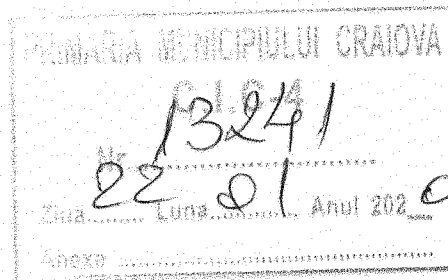 PRIMARIA MUNICIPIULUI CRAIOVA
C.I.C-4
Nr. 13241
Ziua 22 Luna 01 Anul 202
Anexe